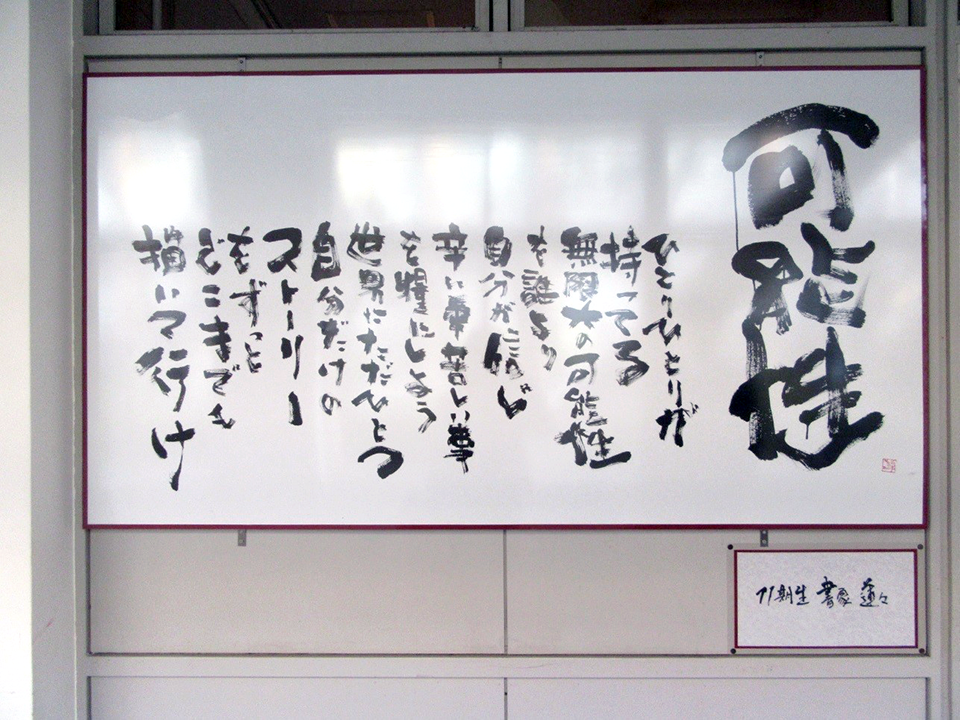 可能性
ひとりひとりが
持ってる
無限大の可能性
を誰より
自分が信じ
辛い事苦しい事
を糧にしよう
世界にただひとつ
自分だけの
ストーリー
をずっと
どこまでも
描いて行け
71期生 書家